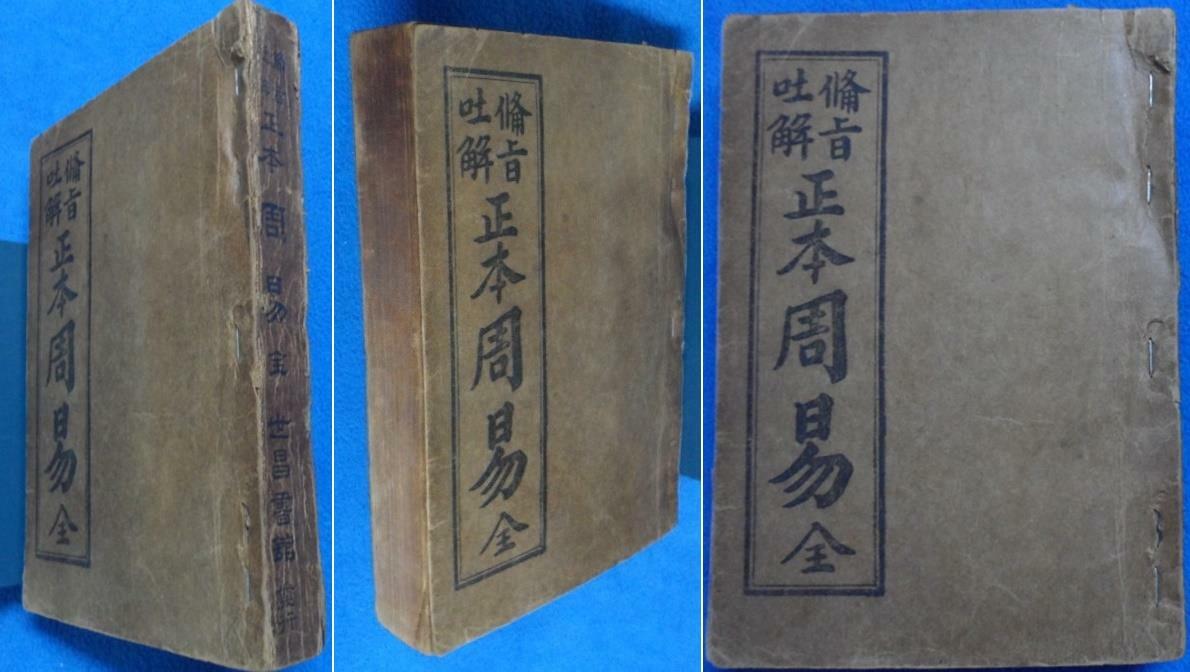 備旨
吐解
正本周易全
正本周易全 世昌書館
備旨
吐解
正本周易全
備旨
吐解
正本周易全